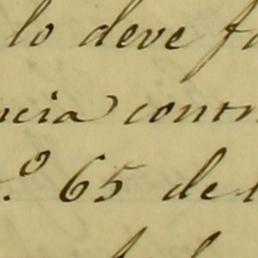 lo deve fa
ncia contr
.º 65 del